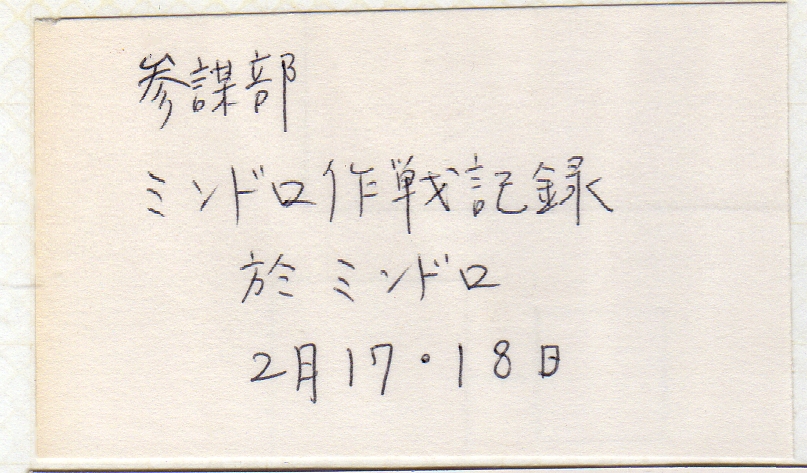 参謀部
ミンドロ作戦記録
於ミンドロ
2月17・18日